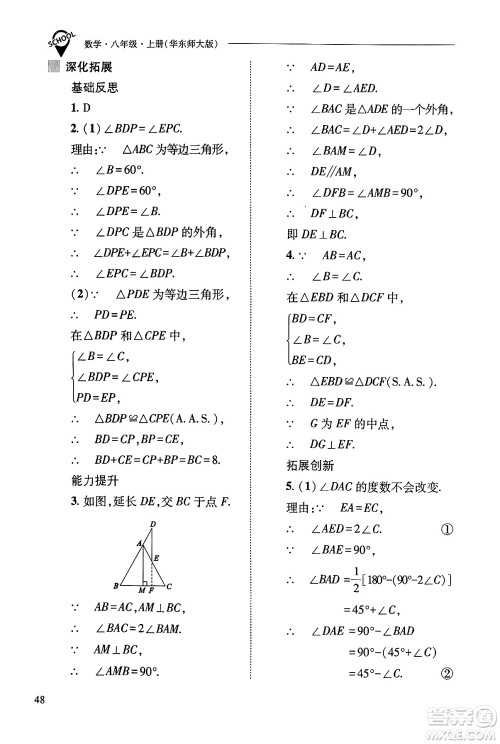 SCHOOL
数学·八年级·上册(华东师大版)
深化拓展
基础反思
1. D
2. (1)∠BDP=∠EPC.
理由:∵ △ABC 为等边三角形,
∴ ∠B=60°.
∵ ∠DPE=60°,
∴ ∠DPE=∠B.
∵ ∠DPC 是△BDP 的外角,
∴ ∠DPE+∠EPC=∠B+∠BDP,
∴ ∠EPC=∠BDP.
(2)∵ △PDE 为等边三角形,
∴ PD=PE.
在△BDP 和△CPE 中,
∠B=∠C,
∠BDP=∠CPE,
PD=EP,
∴ △BDP≌△CPE(A.A.S.),
∴ BD=CP,BP=CE,
∴ BD+CE=CP+BP=BC=8.
能力提升
3. 如图,延长 DE,交 BC 于点 F.
D
A
E
B M F C
∵ AB=AC,AM⊥BC,
∴ ∠BAC=2∠BAM,
∴ ∠AMB=90°.
∵ AD=AE,
∴ ∠D=∠AED.
∵ ∠BAC 是△ADE 的一个外角,
∴ ∠BAC=∠D+∠AED=2∠D,
∴ ∠BAM=∠D,
∴ DE∥AM,
∴ ∠DFB=∠AMB=90°,
∴ DF⊥BC,
即 DE⊥BC.
4. ∵ AB=AC,
∴ ∠B=∠C.
在△EBD 和△DCF 中,
BD=CF,
∠B=∠C,
BE=CD,
∴ △EBD≌△DCF(S.A.S.),
∴ DE=DF.
∵ G 为 EF 的中点,
∴ DG⊥EF.
拓展创新
5. (1)∠DAC 的度数不会改变.
理由:∵ EA=EC,
∴ ∠AED=2∠C. ①
∵ ∠BAE=90°,
∴ ∠BAD=1/2[180°-(90°-2∠C)]
=45°+∠C,
∴ ∠DAE=90°-∠BAD
=90°-(45°+∠C)
=45°-∠C. ②
48